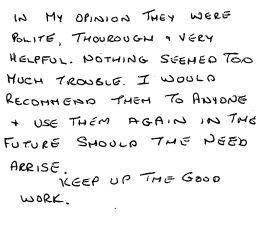 IN MY OPINION THEY WERE
POLITE, THOUROUGH + VERY
HELPFUL. NOTHING SEEMED TOO
MUCH TROUBLE. I WOULD
RECOMMEND THEM TO ANYONE
+ USE THEM AGAIN IN THE
FUTURE SHOULD THE NEED
ARRISE.
KEEP UP THE GOOD
WORK.